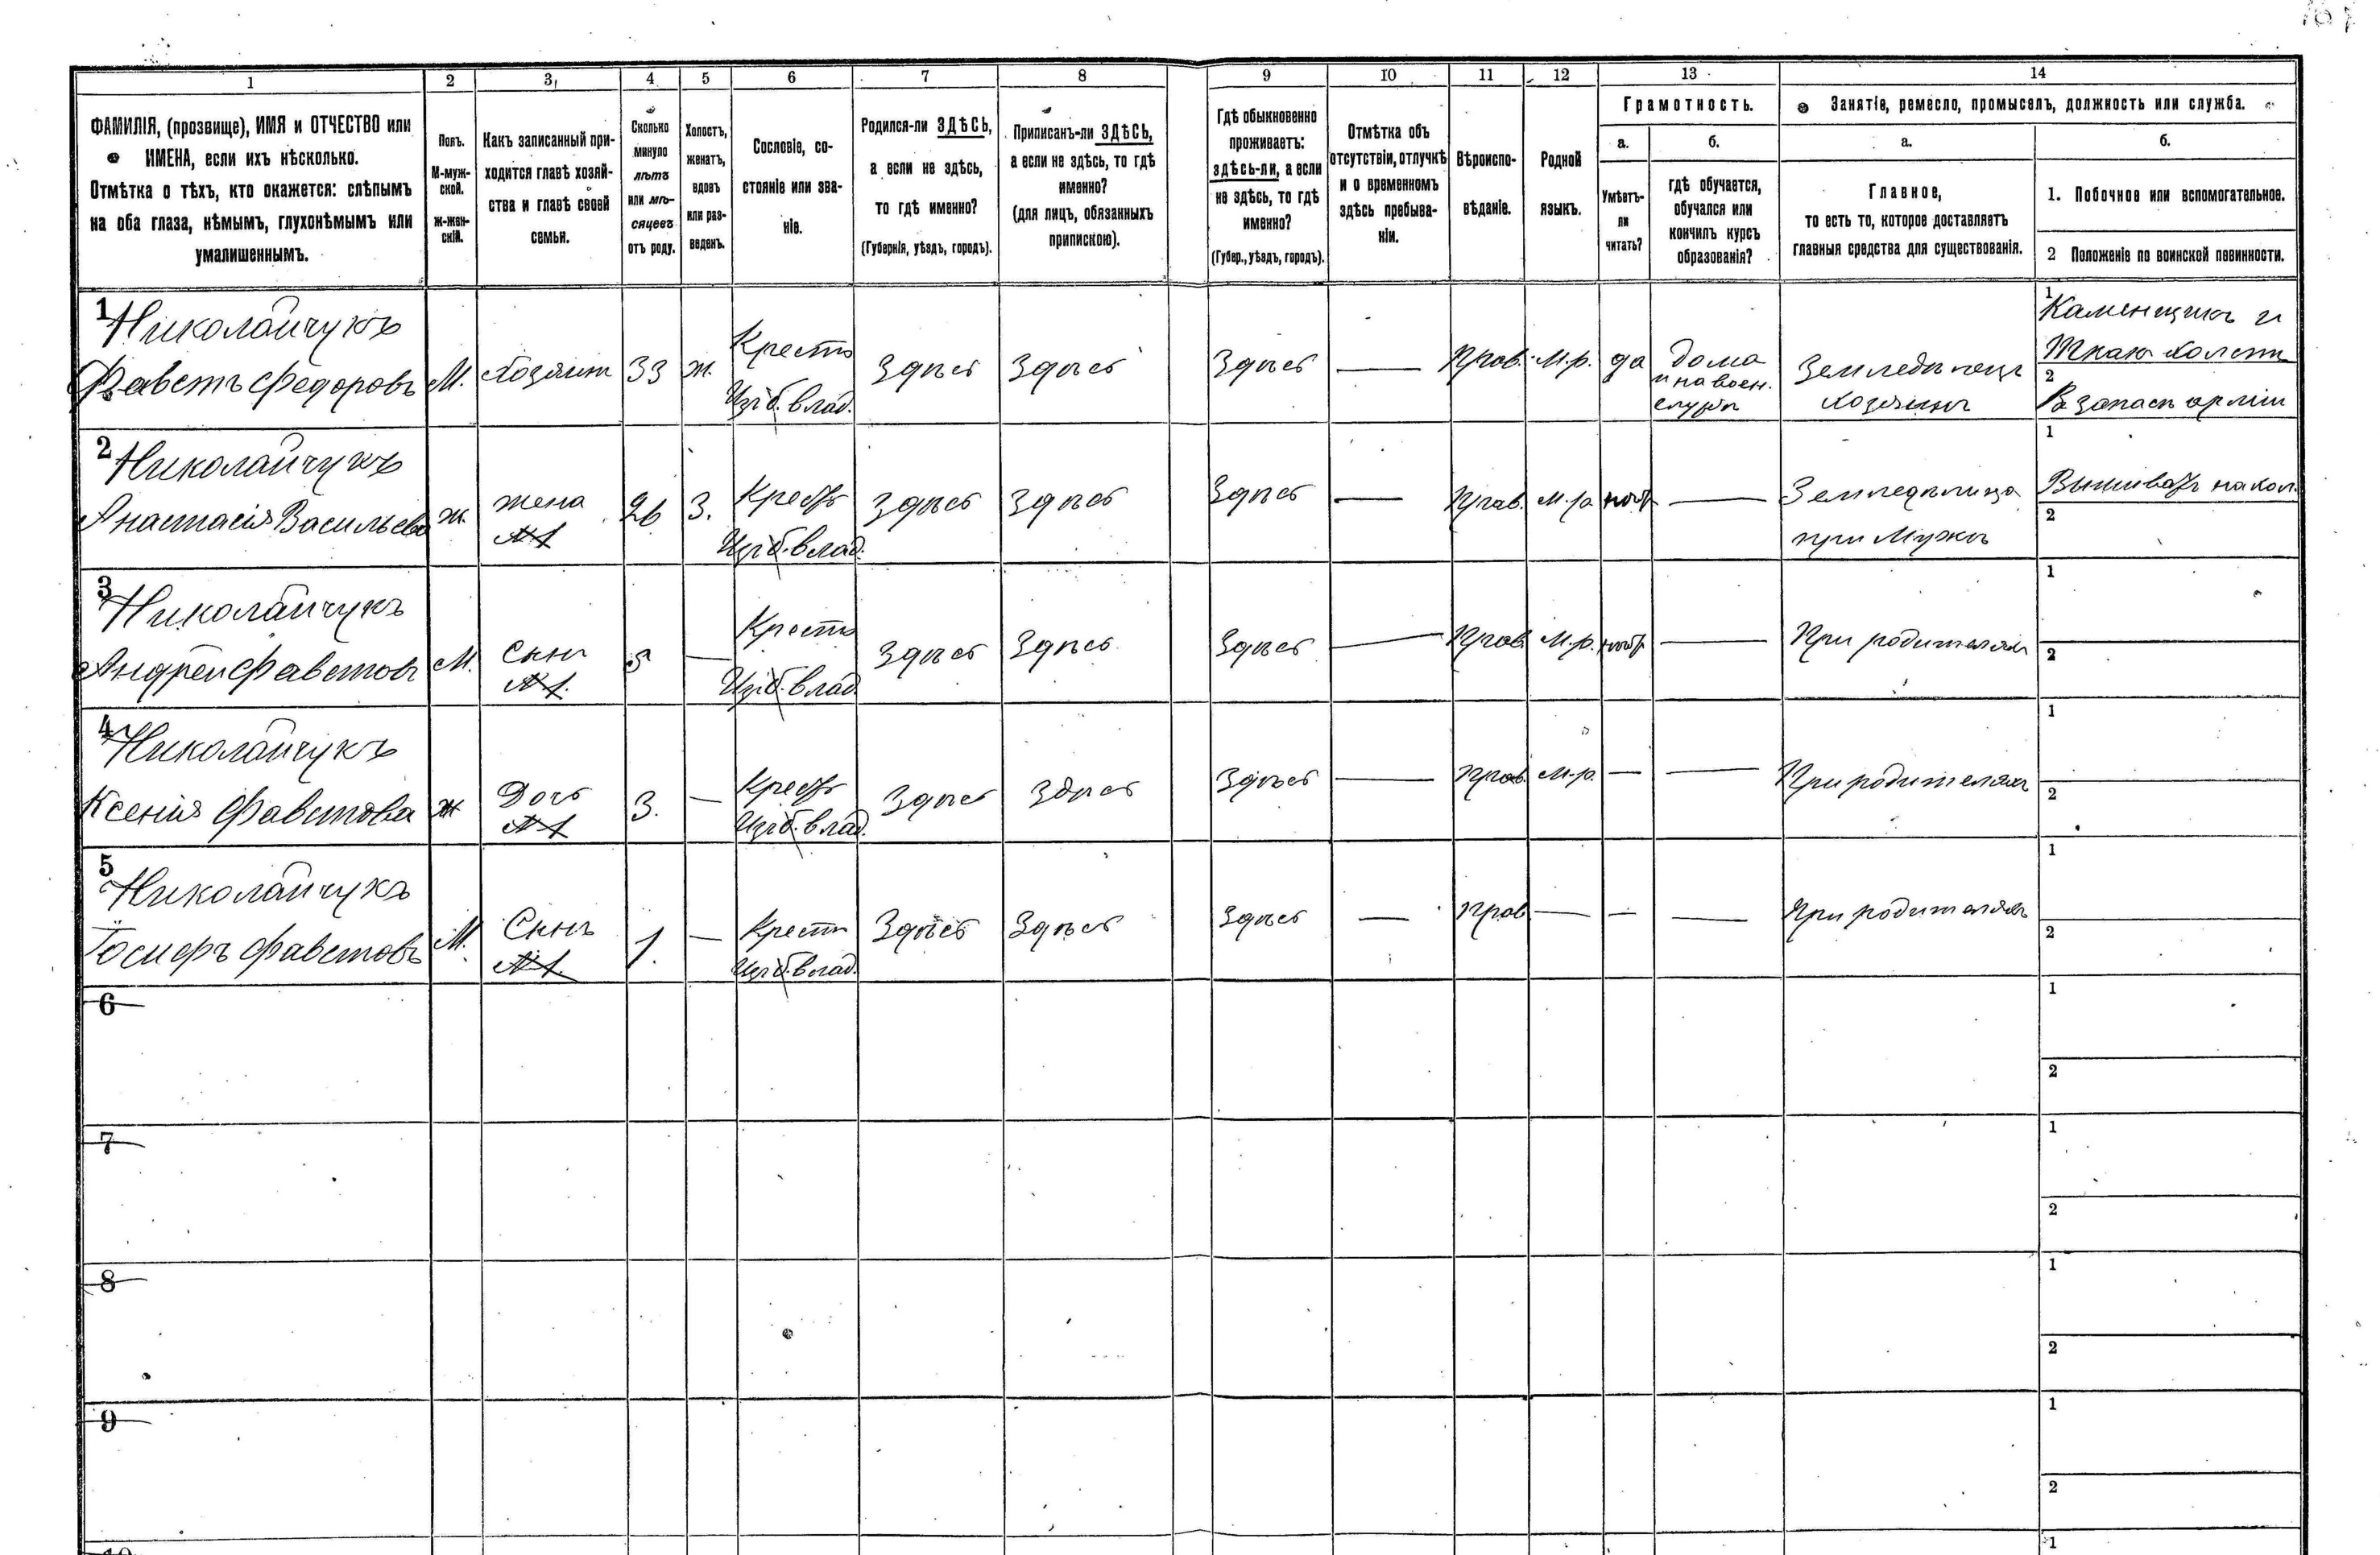 1
2
3
4
5
6
7
8
9
10
11
12
13
14
ФАМИЛІЯ, (прозвище), ИМЯ и ОТЧЕСТВО или
ИМЕНА, если ихъ нѣсколько.
Отмѣтка о тѣхъ, кто окажется: слѣпымъ
на оба глаза, нѣмымъ, глухонѣмымъ или
умалишеннымъ.
Полъ.
М-муж-
ской.
ж-жен-
скій.
Какъ записанный при-
ходится главѣ хозяй-
ства и главѣ своей
семьи.
Сколько
минуло
лѣтъ
или мѣ-
сяцевъ
отъ роду.
Холостъ,
женатъ,
вдовъ
или раз-
веденъ.
Сословіе, со-
стояніе или зва-
ніе.
Родился-ли ЗДѢСЬ,
а если не здѣсь,
то гдѣ именно?
(Губернія, уѣздъ, городъ).
Приписанъ-ли ЗДѢСЬ,
а если не здѣсь, то гдѣ
именно?
(для лицъ, обязанныхъ
припискою).
Гдѣ обыкновенно
проживаетъ:
здѣсь-ли, а если
не здѣсь, то гдѣ
именно?
(Губер., уѣздъ, городъ).
Отмѣтка объ
отсутствіи, отлучкѣ
и о временномъ
здѣсь пребыва-
ніи.
Вѣроиспо-
вѣданіе.
Родной
языкъ.
Грамотность.
а.
Умѣетъ-
ли
читать?
б.
гдѣ обучается,
обучался или
кончилъ курсъ
образованія?
Занятіе, ремесло, промыселъ, должность или служба.
а.
Главное,
то есть то, которое доставляетъ
главныя средства для существованія.
б.
1. Побочное или вспомогательное.
2 Положеніе по воинской повинности.
1
Николайчукъ
Фавстъ Федоровъ
М.
Хозяинъ
33
ж.
Крестъ
Изъ б. влад.
Здѣсь
Здѣсь
Здѣсь
Прав.
М.р.
да
Дома
и на воен.
службѣ
Земледѣлецъ
хозяинъ
1
Каменщикъ и
Ткачъ холста
2
В запасѣ арміи
2
Николайчукъ
Анастасія Васильева
ж.
жена
№1
26
З.
Крест
Изъ б. влад.
Здѣсь
Здѣсь
Здѣсь
Прав.
М.р.
нѣтъ
Земледѣлица
при Мужѣ
1
2
3
Николайчукъ
Андрей Фавстовъ
М.
Сынъ
№1.
5
Крестъ
Изъ б. влад.
Здѣсь
Здѣсь
Здѣсь
Прав.
М.р.
нѣтъ
При родителяхъ
1
2
4
Николайчукъ
Ксенія Фавстова
ж
Дочь
№1
3.
Крест
Изъ б. влад.
Здѣсь
Здѣсь
Здѣсь
Прав.
М.р.
При родителяхъ
1
2
5
Николайчукъ
Іосифъ Фавстовъ
М.
Сынъ
№1.
1.
Крест
Изъ б. влад.
Здѣсь
Здѣсь
Здѣсь
Прав
При родителяхъ
1
2
6
1
2
7
1
2
8
1
2
9
1
2
1